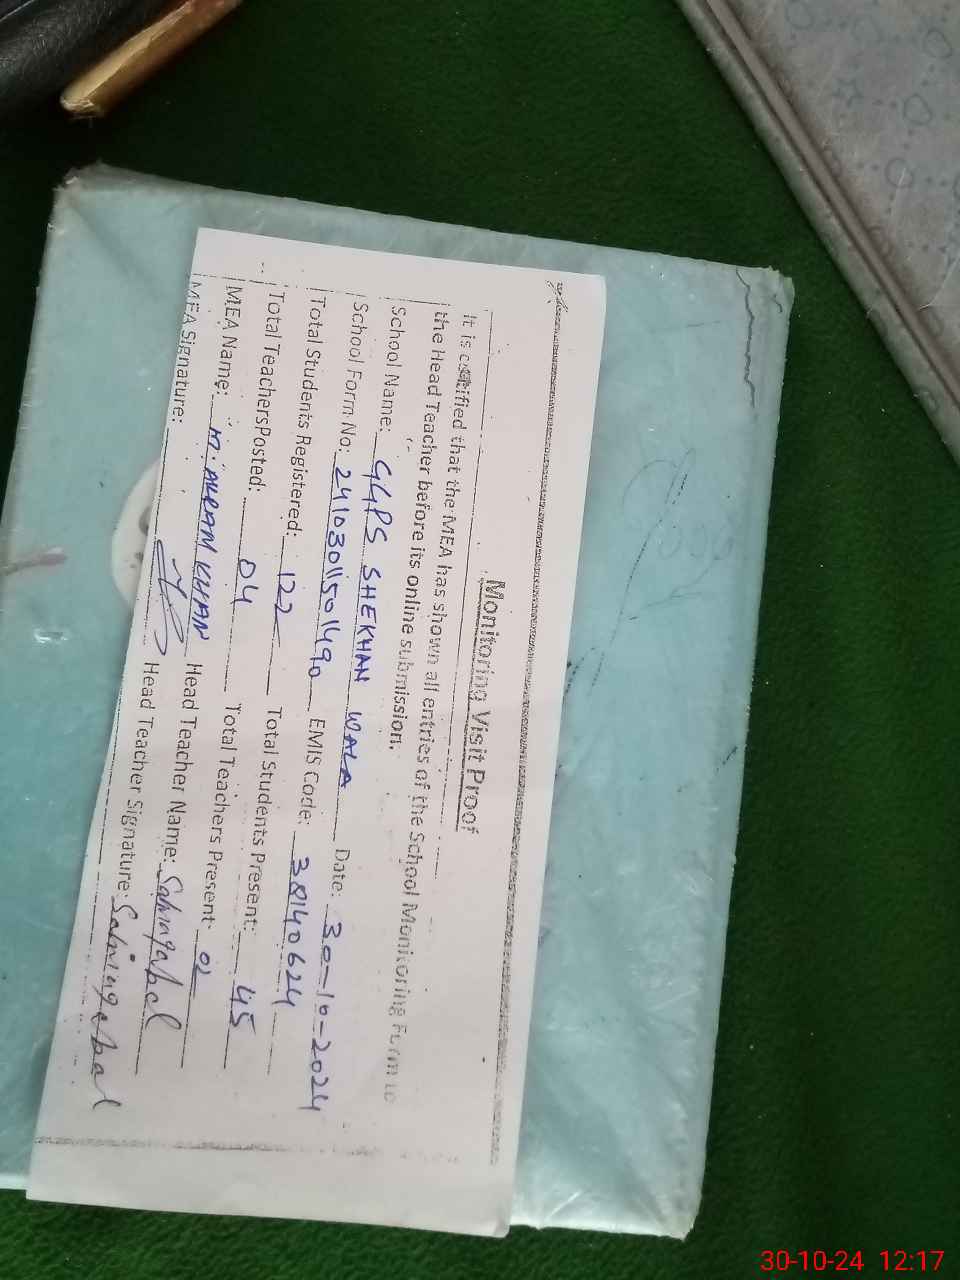 Monitoring Visit Proof
It is certified that the MEA has shown all entries of the School Monitoring Form to
the Head Teacher before its online submission.
School Name: GGPS SHEKHAN WALA Date: 30-10-2024
School Form No: 24103011501490 EMIS Code: 38140624
Total Students Registered: 122 Total Students Present: 45
Total TeachersPosted: 04 Total Teachers Present: 02
MEA Name: M. AKRAM KHAN Head Teacher Name:
MEA Signature: Head Teacher Signature:
30-10-24 12:17